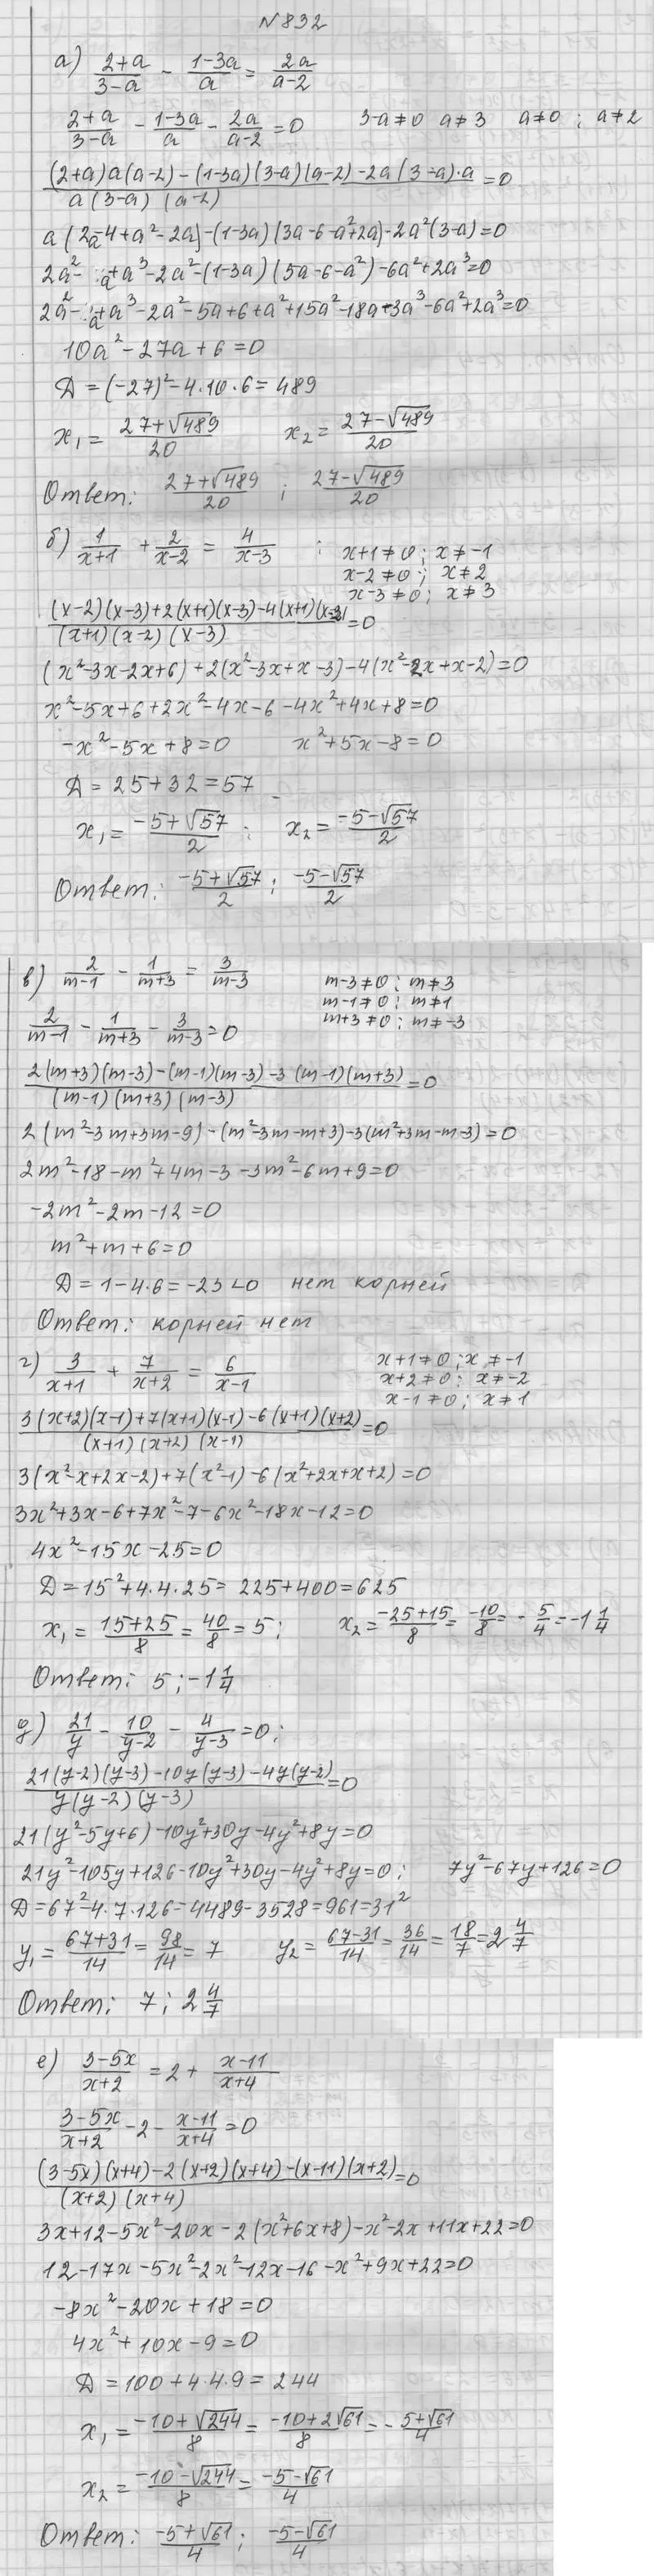 №832
а) (2+a)/(3-a) - (1-3a)/a = 2a/(a-2)
(2+a)/(3-a) - (1-3a)/a - 2a/(a-2) = 0    3-a≠0 a≠3 a≠0 ; a≠2
((2+a)a(a-2) - (1-3a)(3-a)(a-2) - 2a(3-a)·a)/(a(3-a)(a-2)) = 0
a(2a-4+a²-2a)-(1-3a)(3a-6-a²+2a)-2a²(3-a)=0
2a²- a+a³-2a²-(1-3a)(5a-6-a²)-6a²+2a³=0
2a²- a+a³-2a²-5a+6+a²+15a²-18a-3a³-6a²+2a³=0
10a²-27a+6=0
D=(-27)²-4·10·6=489
x₁ = (27+√489)/20    x₂ = (27-√489)/20
Ответ: (27+√489)/20 ; (27-√489)/20
б) 1/(x+1) + 2/(x-2) = 4/(x-3) ; x+1≠0; x≠-1
x-2≠0; x≠2
x-3≠0; x≠3
((x-2)(x-3)+2(x+1)(x-3)-4(x+1)(x-2))/((x+1)(x-2)(x-3)) = 0
(x²-3x-2x+6)+2(x²-3x+x-3)-4(x²-2x+x-2)=0
x²-5x+6+2x²-4x-6-4x²+4x+8=0
-x²-5x+8=0    x²+5x-8=0
D=25+32=57
x₁ = (-5+√57)/2 ; x₂ = (-5-√57)/2
Ответ: (-5+√57)/2 ; (-5-√57)/2
в) 2/(m-1) - 1/(m+3) = 3/(m-3)    m-3≠0; m≠3
m-1≠0; m≠1
m+3≠0; m≠-3
2/(m-1) - 1/(m+3) - 3/(m-3) = 0
(2(m+3)(m-3)-(m-1)(m-3)-3(m-1)(m+3))/((m-1)(m+3)(m-3)) = 0
2(m²-3m+3m-9)-(m²-3m-m+3)-3(m²+3m-m-3)=0
2m²-18-m²+4m-3-3m²-6m+9=0
-2m²-2m-12=0
m²+m+6=0
D=1-4·6=-23<0 нет корней
Ответ: корней нет
г) 3/(x+1) + 7/(x+2) = 6/(x-1)    x+1≠0; x≠-1
x+2≠0; x≠-2
x-1≠0; x≠1
(3(x+2)(x-1)+7(x+1)(x-1)-6(x+1)(x+2))/((x+1)(x+2)(x-1)) = 0
3(x²-x+2x-2)+7(x²-1)-6(x²+2x+x+2)=0
3x²+3x-6+7x²-7-6x²-18x-12=0
4x²-15x-25=0
D=15²+4·4·25=225+400=625
x₁ = (15+25)/8 = 40/8 = 5; x₂ = (-25+15)/8 = -10/8 = -5/4 = -1 1/4
Ответ: 5; -1 1/4
д) 21/y - 10/(y-2) - 4/(y-3) = 0;
(21(y-2)(y-3)-10y(y-3)-4y(y-2))/(y(y-2)(y-3)) = 0
21(y²-5y+6)-10y²+30y-4y²+8y=0
21y²-105y+126-10y²+30y-4y²+8y=0; 7y²-67y+126=0
D=67²-4·7·126=4489-3528=961=31²
y₁ = (67+31)/14 = 98/14 = 7    y₂ = (67-31)/14 = 36/14 = 18/7 = 2 4/7
Ответ: 7; 2 4/7
е) (3-5x)/(x+2) = 2 + (x-11)/(x+4)
(3-5x)/(x+2) - 2 - (x-11)/(x+4) = 0
((3-5x)(x+4)-2(x+2)(x+4)-(x-11)(x+2))/((x+2)(x+4)) = 0
3x+12-5x²-20x-2(x²+6x+8)-x²-2x+11x+22=0
12-17x-5x²-2x²-12x-16-x²+9x+22=0
-8x²-20x+18=0
4x²+10x-9=0
D=100+4·4·9=244
x₁ = (-10+√244)/8 = (-10+2√61)/8 = -(5+√61)/4
x₂ = (-10-√244)/8 = (-5-√61)/4
Ответ: (-5+√61)/4 ; (-5-√61)/4